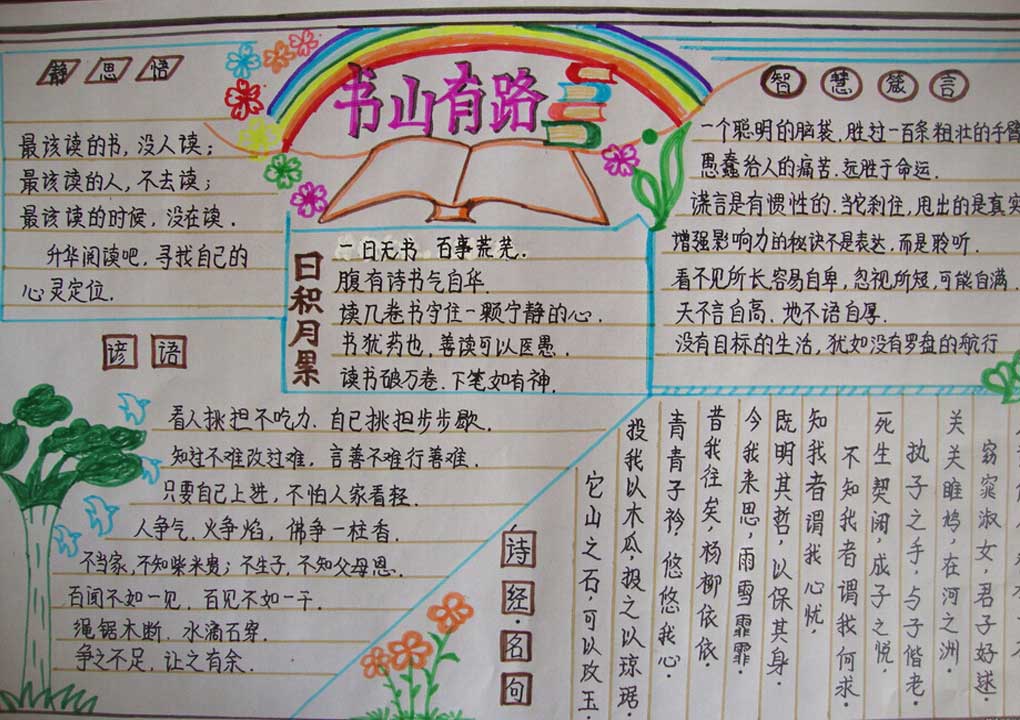 书山有路
静思悟
最该读的书，没人读；
最该读的人，不去读；
最该读的时候，没在读．
升华阅读吧，寻找自己的
心灵定位．
日积月果
一日无书 百事荒芜．
腹有诗书气自华．
读几卷书守住一颗宁静的心．
书犹药也，善读可以医愚．
读书破万卷．下笔如有神．
智慧箴言
一个聪明的脑袋，胜过一百条粗壮的手臂
愚蠢给人的痛苦．远胜于命运．
谎言是有惯性的．当它刹住，甩出的是真实
增强影响力的秘诀不是表达，而是聆听．
看不见所长，容易自卑，忽视所短，可能自满．
天不言自高．地不语自厚．
没有目标的生活，犹如没有罗盘的航行
谚语
看人挑担不吃力．自己挑担步步歇．
知过不难改过难，言善不难行善难．
只要自己上进，不怕人家看轻．
人争气，火争焰，佛争一柱香．
不当家，不知柴米贵；不生子，不知父母恩．
百闻不如一见，百见不如一干．
绳锯木断．水滴石穿．
争之不足，让之有余．
诗经·名句
它山之石，可以攻玉．
投我以木瓜，报之以琼琚．
青青子衿，悠悠我心．
昔我往矣，杨柳依依．
今我来思，雨雪霏霏
既明其哲，以保其身．
知我者谓我心忧，
不知我者谓我何求．
死生契阔，成子之悦，
执子之手，与子偕老．
关关雎鸠，在河之洲．
窈窕淑女，君子好逑．